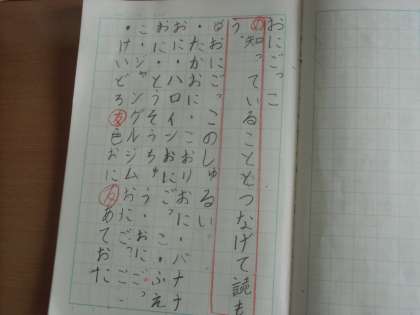 おにごっこ
め知っていることとつなげて読もう。
おにごっこのしゅるい
・たかおに・こおりおに・バナナ
おに・ハロインおにごっこ・ふえ
おに・とうそうちゅう・おにごっ
こ・ジャングルジムおにごっこ
・けいどろ友色おに友あてておに